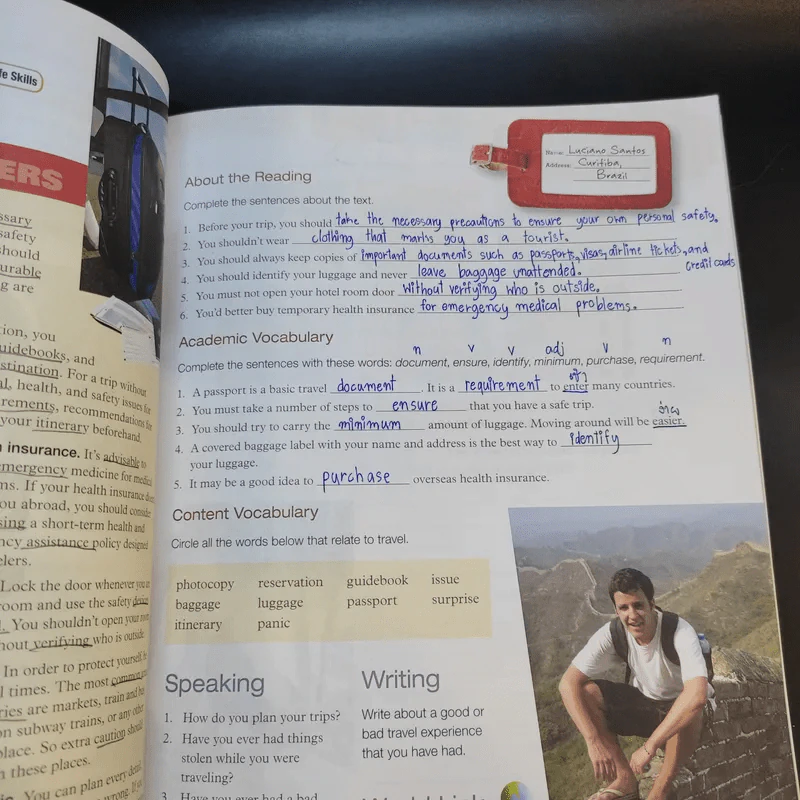 fe Skills
ERS
ssary
safety
should
urable
g are
tion, you
uidebooks, and
stination. For a trip without
al, health, and safety issues for
rements, recommendations for
your itinerary beforehand.
n insurance. It's advisable to
emergency medicine for medical
ms. If your health insurance
ou abroad, you should consider
sing a short-term health and
ncy assistance policy designed
elers.
Lock the door whenever you
room and use the safety
. You shouldn't open your
hout verifying who is outside.
In order to protect yourself,
l times. The most common
ries are markets, train and
on subway trains, or any other
place. So extra caution should
n these places.
You can plan every detail
wrong. If
Name: Luciano Santos
Address: Curitiba,
Brazil
About the Reading
Complete the sentences about the text.
1. Before your trip, you should take the necessary precautions to ensure your own personal safety.
2. You shouldn't wear clothing that marks you as a tourist.
3. You should always keep copies of important documents such as passports, visas, airline tickets, and
credit cards
4. You should identify your luggage and never leave baggage unattended.
5. You must not open your hotel room door without verifying who is outside.
6. You'd better buy temporary health insurance for emergency medical problems.
Academic Vocabulary
n v v adj v n
Complete the sentences with these words: document, ensure, identify, minimum, purchase, requirement.
เข้า
1. A passport is a basic travel document. It is a requirement to enter many countries.
2. You must take a number of steps to ensure that you have a safe trip.
ง่าย
3. You should try to carry the minimum amount of luggage. Moving around will be easier.
4. A covered baggage label with your name and address is the best way to identify
your luggage.
5. It may be a good idea to purchase overseas health insurance.
Content Vocabulary
Circle all the words below that relate to travel.
photocopy reservation guidebook issue
baggage luggage passport surprise
itinerary panic
Speaking
1. How do you plan your trips?
2. Have you ever had things
stolen while you were
traveling?
3. Have you ever had a bad
Writing
Write about a good or
bad travel experience
that you have had.